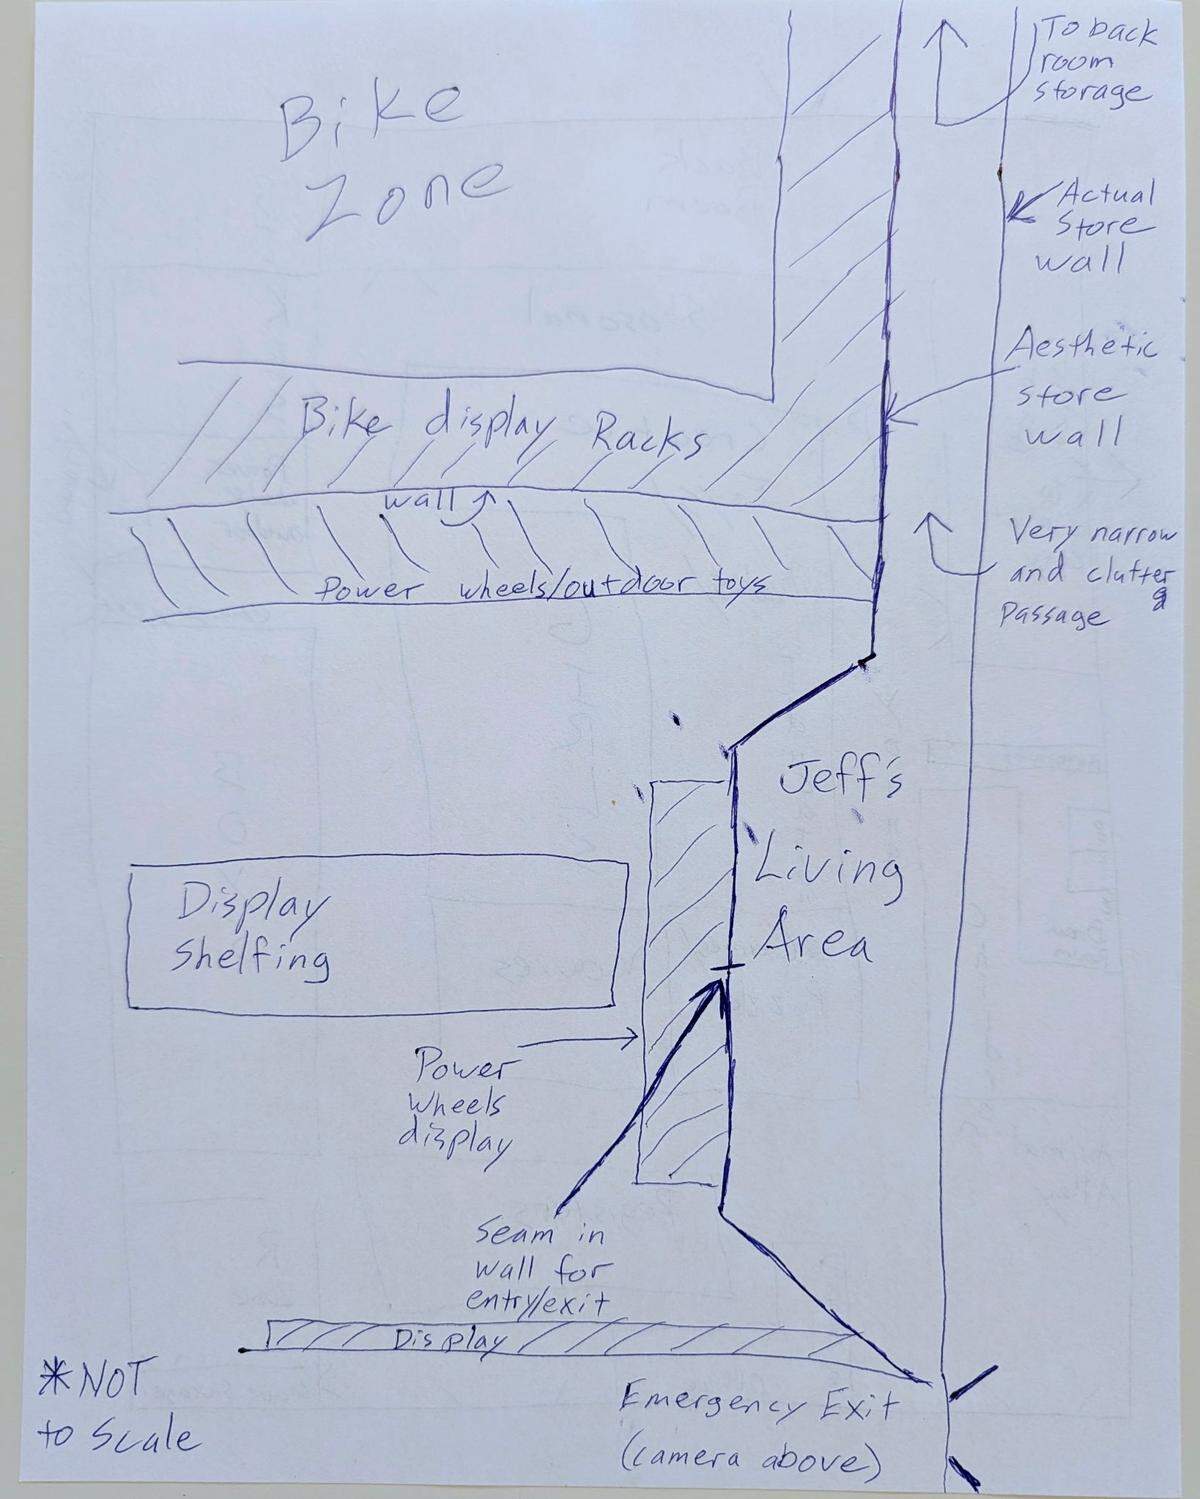 Bike
Zone
To back
room
storage
Actual
Store
wall
Aesthetic
store
wall
Bike display Racks
wall
Power wheels/outdoor toys
Very narrow
and clutter
passage
Jeff's
Living
Area
Display
Shelfing
Power
wheels
display
Seam in
wall for
entry/exit
Display
*NOT
to Scale
Emergency Exit
(camera above)